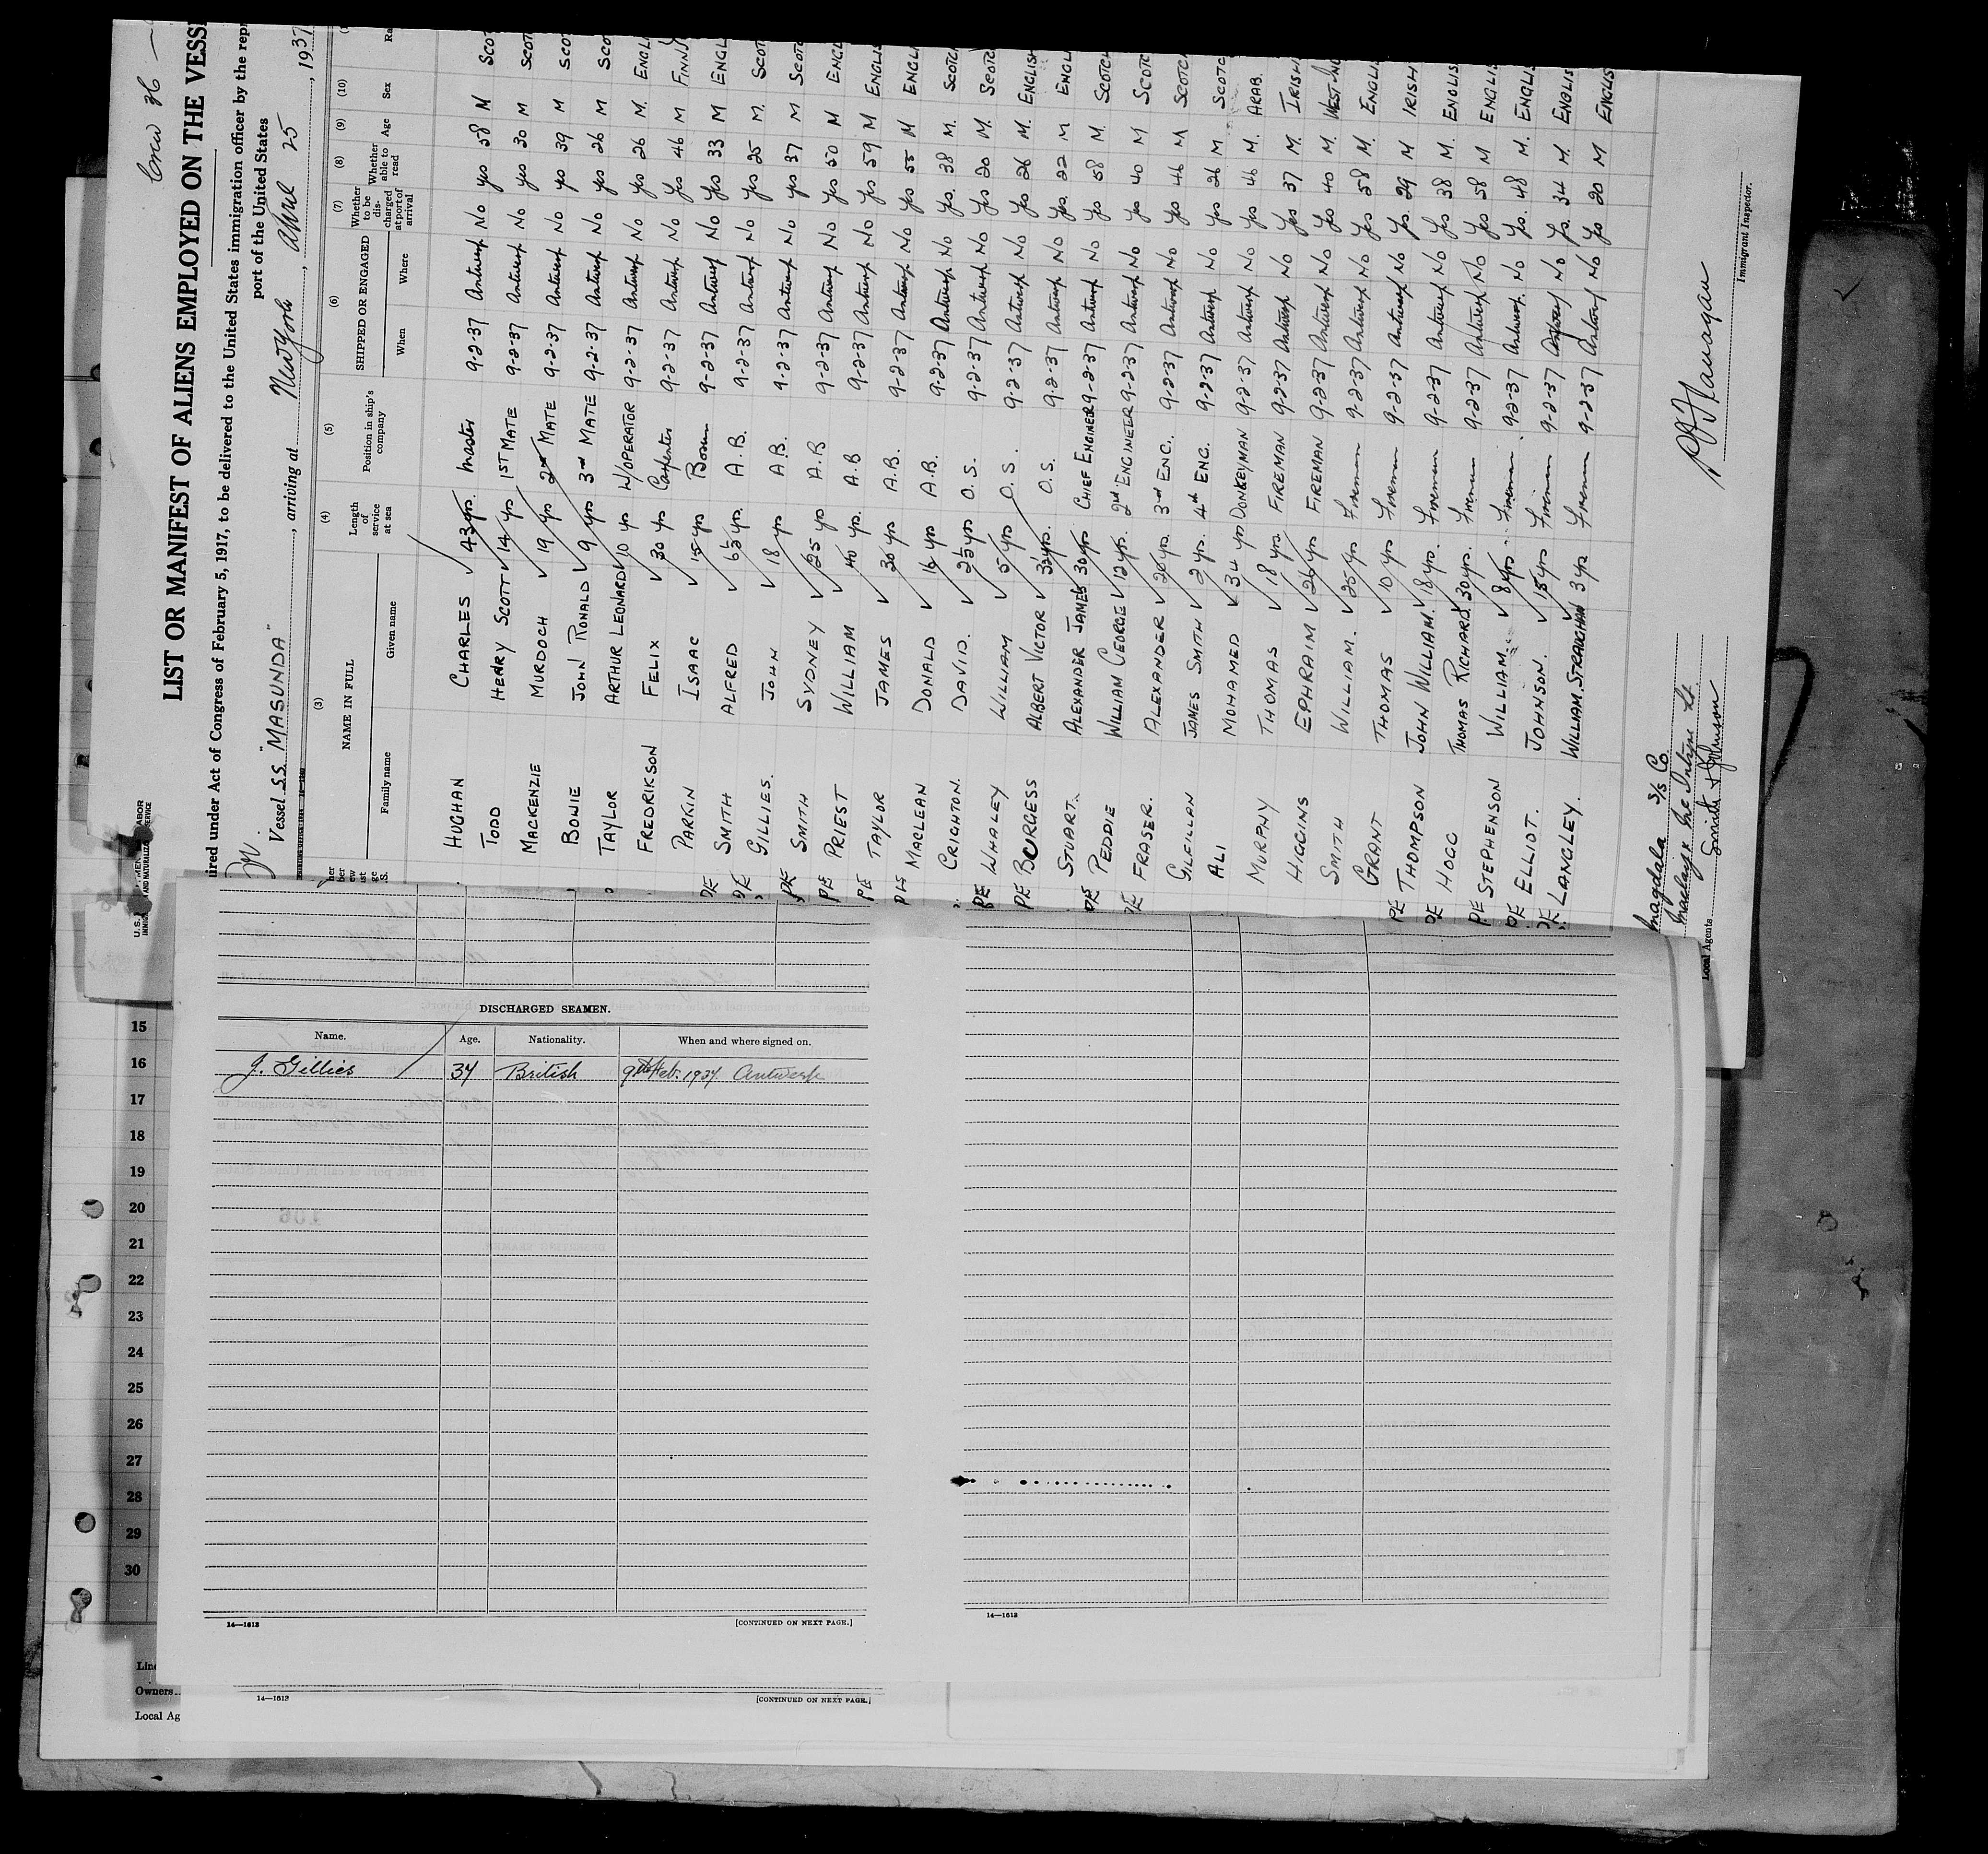 Crew 36 —
LIST OR MANIFEST OF ALIENS EMPLOYED ON THE VESS
ired under Act of Congress of February 5, 1917, to be delivered to the United States immigration officer by the repr
port of the United States
Vessel SS "MASUNDA", arriving at New York, April 25, 1937
(3) (4) (5) (6) (7) (8) (9) (10)
NAME IN FULL Length of service at sea Position in ship's company SHIPPED OR ENGAGED Whether to be discharged at port of arrival Whether able to read Age Sex Ra
Family name Given name When Where
HUGHAN CHARLES 43 yrs. Master 9-2-37 Antwerp No yes 58 M SCOT
TODD HENRY SCOTT 14 yrs 1ST MATE 9-2-37 Antwerp No yes 30 M SCOT
MACKENZIE MURDOCH 19 yrs 2nd MATE 9-2-37 Antwerp No yes 39 M SCO
BOWIE JOHN RONALD 9 yrs 3rd MATE 9-2-37 Antwerp No yes 26 M SCO
TAYLOR ARTHUR LEONARD 10 yrs W/OPERATOR 9-2-37 Antwerp No yes 26 M. ENGL
FREDRIKSON FELIX 30 yrs Carpenter 9-2-37 Antwerp No yes 46 M FINN
PARKIN ISAAC 15 yrs Bosun 9-2-37 Antwerp No yes 33 M ENGL
DE SMITH ALFRED 6½ yrs. A.B. 9-2-37 Antwerp No yes 25 M. SCOT
DE GILLIES. JOHN 18 yrs A.B. 9-2-37 Antwerp No yes 37 M SCOTC
DE SMITH SYDNEY 25 yrs A.B 9-2-37 Antwerp No yes 50 M ENGL
PE PRIEST WILLIAM 40 yrs. A.B 9-2-37 Antwerp No yes 59 M ENGLIS
PE TAYLOR JAMES 30 yrs A.B. 9-2-37 Antwerp No yes 55 M ENGLI
MACLEAN DONALD 16 yrs A.B. 9-2-37 Antwerp No yes. 38 M. SCOTC
CRIGHTON. DAVID. 2½ yrs O.S. 9-2-37 Antwerp No yes 20 M. SCOTC
PE WHALEY WILLIAM 5 yrs O.S. 9-2-37 Antwerp No yes 26 M. ENGLISH
PE BURGESS ALBERT VICTOR 3½ yrs. O.S. 9-2-37 Antwerp No yes. 22 M ENGL
STUART. ALEXANDER JAMES 30 yrs CHIEF ENGINEER 9-2-37 Antwerp No yes 58 M. SCOTCH
DE PEDDIE WILLIAM GEORGE 12 yrs. 2nd ENGINEER 9-2-37 Antwerp No yes 40 M SCOTC
DE FRASER. ALEXANDER 20 yrs. 3rd ENG. 9-2-37 Antwerp No yes 46 M SCOTCH
GILFILLAN JAMES SMITH 2 yrs. 4th ENG. 9-2-37 Antwerp No yes 26 M SCOTC
ALI MOHAMED 34 yrs DONKEYMAN 9-2-37 Antwerp No yes 46 M. ARAB.
MURPHY THOMAS 18 yrs FIREMAN 9-2-37 Antwerp No yes 37 M. IRISH
HIGGINS EPHRAIM 26 yrs FIREMAN 9-2-37 Antwerp No yes 40 M. WEST-IND
SMITH WILLIAM. 25 yrs Fireman 9-2-37 Antwerp No yes 58 M. ENGLI
GRANT THOMAS 10 yrs Fireman 9-2-37 Antwerp No yes. 29 M IRISH
PE THOMPSON JOHN WILLIAM. 18 yrs. Fireman 9-2-37 Antwerp No yes 38 M. ENGLIS
DE HOGG THOMAS RICHARD. 30 yrs. Fireman 9-2-37 Antwerp No yes 58 M ENGLI
PE STEPHENSON WILLIAM. 8 yrs. Fireman. 9-2-37 Antwerp No yes. 48 M. ENGLI
DE ELLIOT. JOHNSON. 15 yrs Fireman 9-2-37 Antwerp No yes. 34 M. ENGLIS
DE LANGLEY. WILLIAM. STRAUGHAN 3 yrs Fireman 9-2-37 Antwerp No yes 20 M ENGLIS
Magdala S/S Co
Maclay & Mc Intyre Ld.
Local Agents Smith & Johnson
Immigrant Inspector.
DISCHARGED SEAMEN.
Name. Age. Nationality. When and where signed on.
J. Gillies 37 British 9th Feb. 1937 Antwerp
14—1613 [CONTINUED ON NEXT PAGE.]
14—1613
14—1613 [CONTINUED ON NEXT PAGE.]
15
16
17
18
19
20
21
22
23
24
25
26
27
28
29
30
Line
Owners
Local Ag